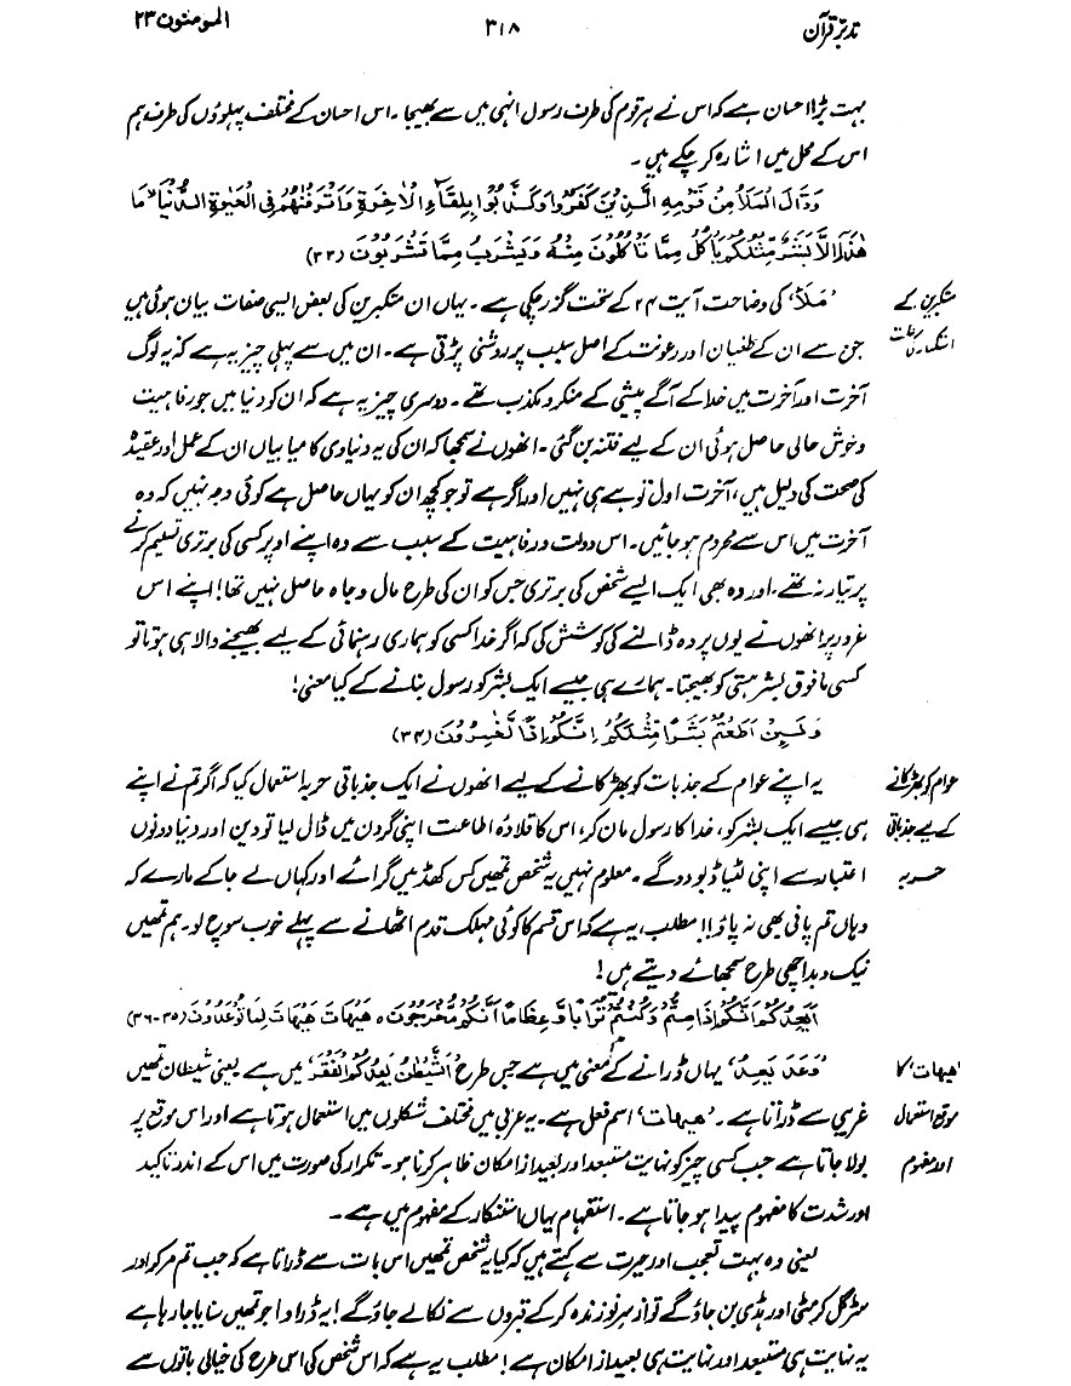 تدبّر قرآن ۳۱۸ المومنون ۲۳
بہت بڑا احسان ہے کہ اس نے ہر قوم کی طرف رسول انہی میں سے بھیجا۔ اس احسان کے مختلف پہلوؤں کی طرف ہم
اس کے محل میں اشارہ کر چکے ہیں۔
وَقَالَ الْمَلَاُ مِنْ قَوْمِهِ الَّذِيْنَ كَفَرُوْا وَكَذَّبُوْا بِلِقَاۗءِ الْاٰخِرَةِ وَاَتْرَفْنٰهُمْ فِى الْحَيٰوةِ الدُّنْيَا ۙ مَا
هٰذَآ اِلَّا بَشَرٌ مِّثْلُكُمْ يَاْكُلُ مِمَّا تَاْكُلُوْنَ مِنْهُ وَيَشْرَبُ مِمَّا تَشْرَبُوْنَ (۳۳)
متکبرین کے
استکبار کی علت
’مَلَاُ‘ کی وضاحت آیت ۲۴ کے تحت گزر چکی ہے۔ یہاں ان متکبرین کی بعض ایسی صفات بیان ہوئی ہیں
جن سے ان کے طغیان اور رعونت کے اصل سبب پر روشنی پڑتی ہے۔ ان میں سے پہلی چیز یہ ہے کہ یہ لوگ
آخرت اور آخرت میں خدا کے آگے پیشی کے منکر و مکذب تھے۔ دوسری چیز یہ ہے کہ ان کو دنیا میں جو رفاہیت
و خوش حالی حاصل ہوئی ان کے لیے فتنہ بن گئی۔ انھوں نے سمجھا کہ ان کی یہ دنیاوی کامیابیاں ان کے عمل اور عقیدہ
کی صحت کی دلیل ہیں، آخرت اول تو ہے ہی نہیں اور اگر ہے تو جو کچھ ان کو یہاں حاصل ہے کوئی وجہ نہیں کہ وہ
آخرت میں اس سے محروم ہو جائیں۔ اس دولت و رفاہیت کے سبب سے وہ اپنے اوپر کسی کی برتری تسلیم کرنے
پر تیار نہ تھے۔ اور وہ بھی ایک ایسے شخص کی برتری جس کو ان کی طرح مال و جاہ حاصل نہیں تھا! اپنے اس
غرور پر انھوں نے یوں پردہ ڈالنے کی کوشش کی کہ اگر خدا کسی کو ہماری رہنمائی کے لیے بھیجنے والا ہی ہوتا تو
کسی مافوق بشر ہستی کو بھیجتا۔ ہمارے ہی جیسے ایک بشر کو رسول بنانے کے کیا معنی!
وَلَىِٕنْ اَطَعْتُمْ بَشَرًا مِّثْلَكُمْ اِنَّكُمْ اِذًا لَّخٰسِرُوْنَ (۳۴)
عوام کو بھڑکانے
کے لیے جذباتی
حربہ
یہ اپنے عوام کے جذبات کو بھڑکانے کے لیے انھوں نے ایک جذباتی حربہ استعمال کیا کہ اگر تم نے اپنے
ہی جیسے ایک بشر کو، خدا کا رسول مان کر، اس کا قلادۂ اطاعت اپنی گردن میں ڈال لیا تو دین اور دنیا دونوں
اعتبار سے اپنی لٹیا ڈبو دو گے۔ معلوم نہیں یہ شخص تمھیں کس کھڈ میں گرائے اور کہاں لے جا کے مارے کہ
وہاں تم پانی بھی نہ پاؤ!! مطلب یہ ہے کہ اس قسم کا کوئی مہلک قدم اٹھانے سے پہلے خوب سوچ لو۔ ہم تمھیں
نیک و بد اچھی طرح سمجھائے دیتے ہیں!
اَيَعِدُكُمْ اَنَّكُمْ اِذَا مِتُّمْ وَكُنْتُمْ تُرَابًا وَّعِظَامًا اَنَّكُمْ مُّخْرَجُوْنَ ۝ هَيْهَاتَ هَيْهَاتَ لِمَا تُوْعَدُوْنَ (۳۵-۳۶)
’ھیھات‘ کا
موقع استعمال
اور مفہوم
’وَعَدَ يَعِدُ‘ یہاں ڈرانے کے معنی میں ہے جس طرح ’اَلشَّيْطٰنُ يَعِدُكُمُ الْفَقْرَ‘ میں ہے یعنی شیطان تمھیں
غریبی سے ڈراتا ہے۔ ’ھیھات‘ اسم فعل ہے۔ یہ عربی میں مختلف شکلوں میں استعمال ہوتا ہے اور اس موقع پر
بولا جاتا ہے جب کسی چیز کو نہایت مستبعد اور بعید از امکان ظاہر کرنا ہو۔ تکرار کی صورت میں اس کے اندر تاکید
اور شدت کا مفہوم پیدا ہو جاتا ہے۔ استفہام یہاں استنکار کے مفہوم میں ہے۔
یعنی وہ بہت تعجب اور حیرت سے کہتے ہیں کہ کیا یہ شخص تمھیں اس بات سے ڈراتا ہے کہ جب تم مر کر اور
سڑ گل کر مٹی اور ہڈی بن جاؤ گے تو از سر نو زندہ کر کے قبروں سے نکالے جاؤ گے! یہ ڈراوا جو تمھیں سنایا جا رہا ہے
یہ نہایت ہی مستبعد اور نہایت ہی بعید از امکان ہے! مطلب یہ ہے کہ اس شخص کی اس طرح کی خیالی باتوں سے